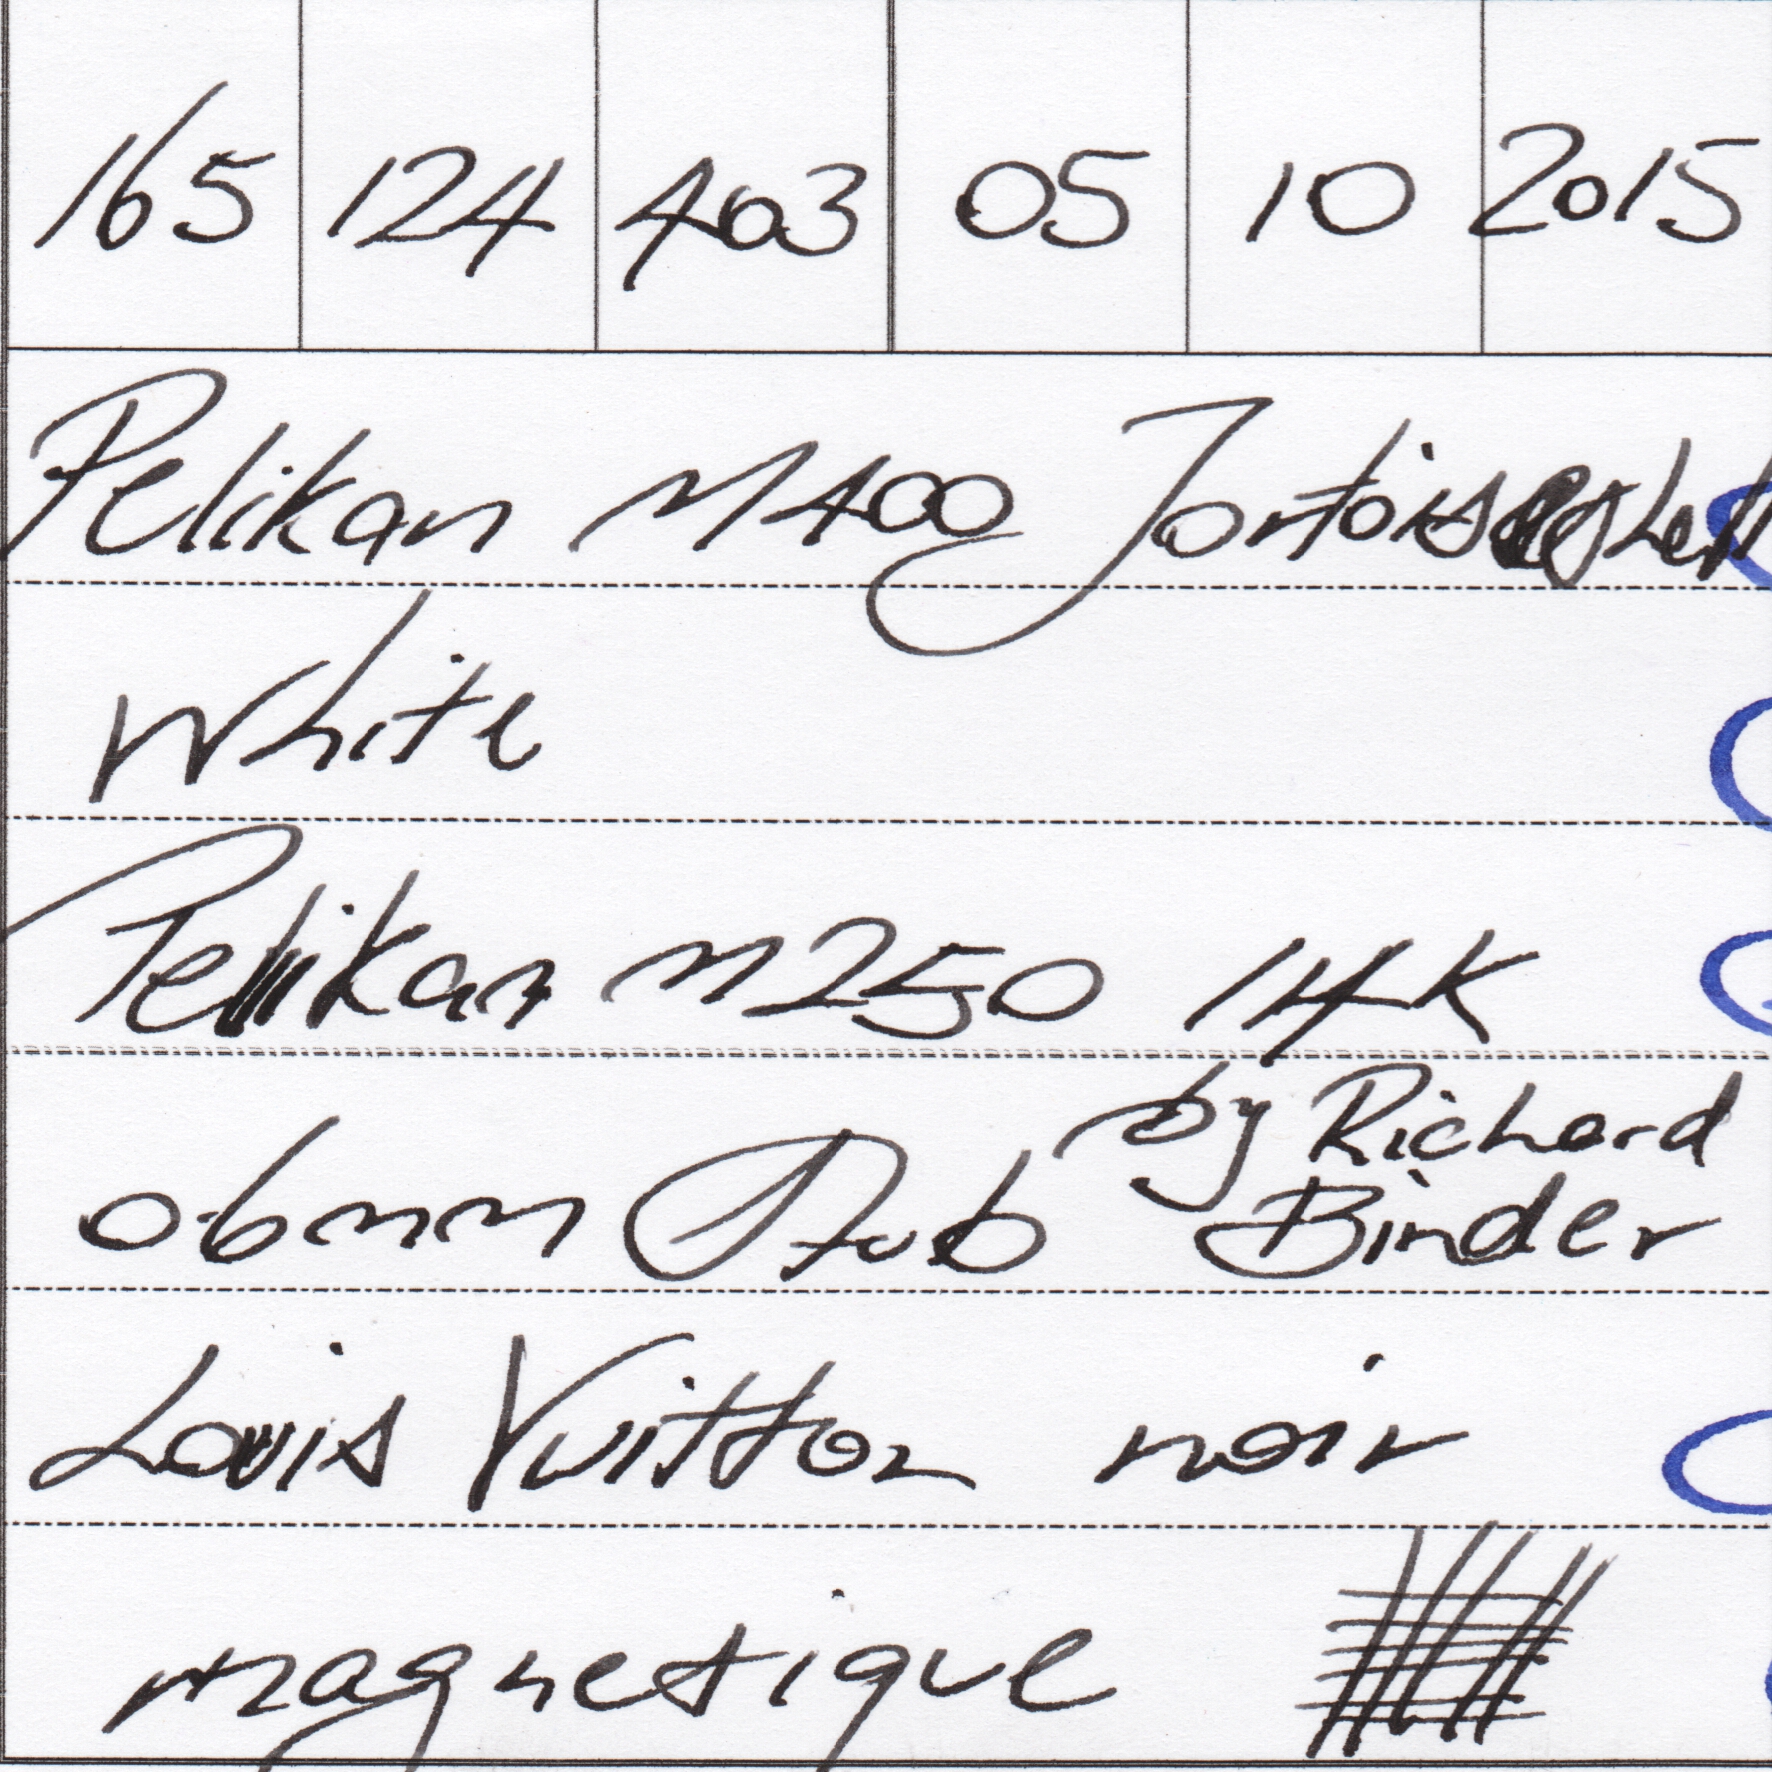 165 124 403 05 10 2015
Pelikan M400 Tortoiseshell
White
Pelikan M250 14K
06mm Stub by Richard Binder
Louis Vuitton noir
magnetique